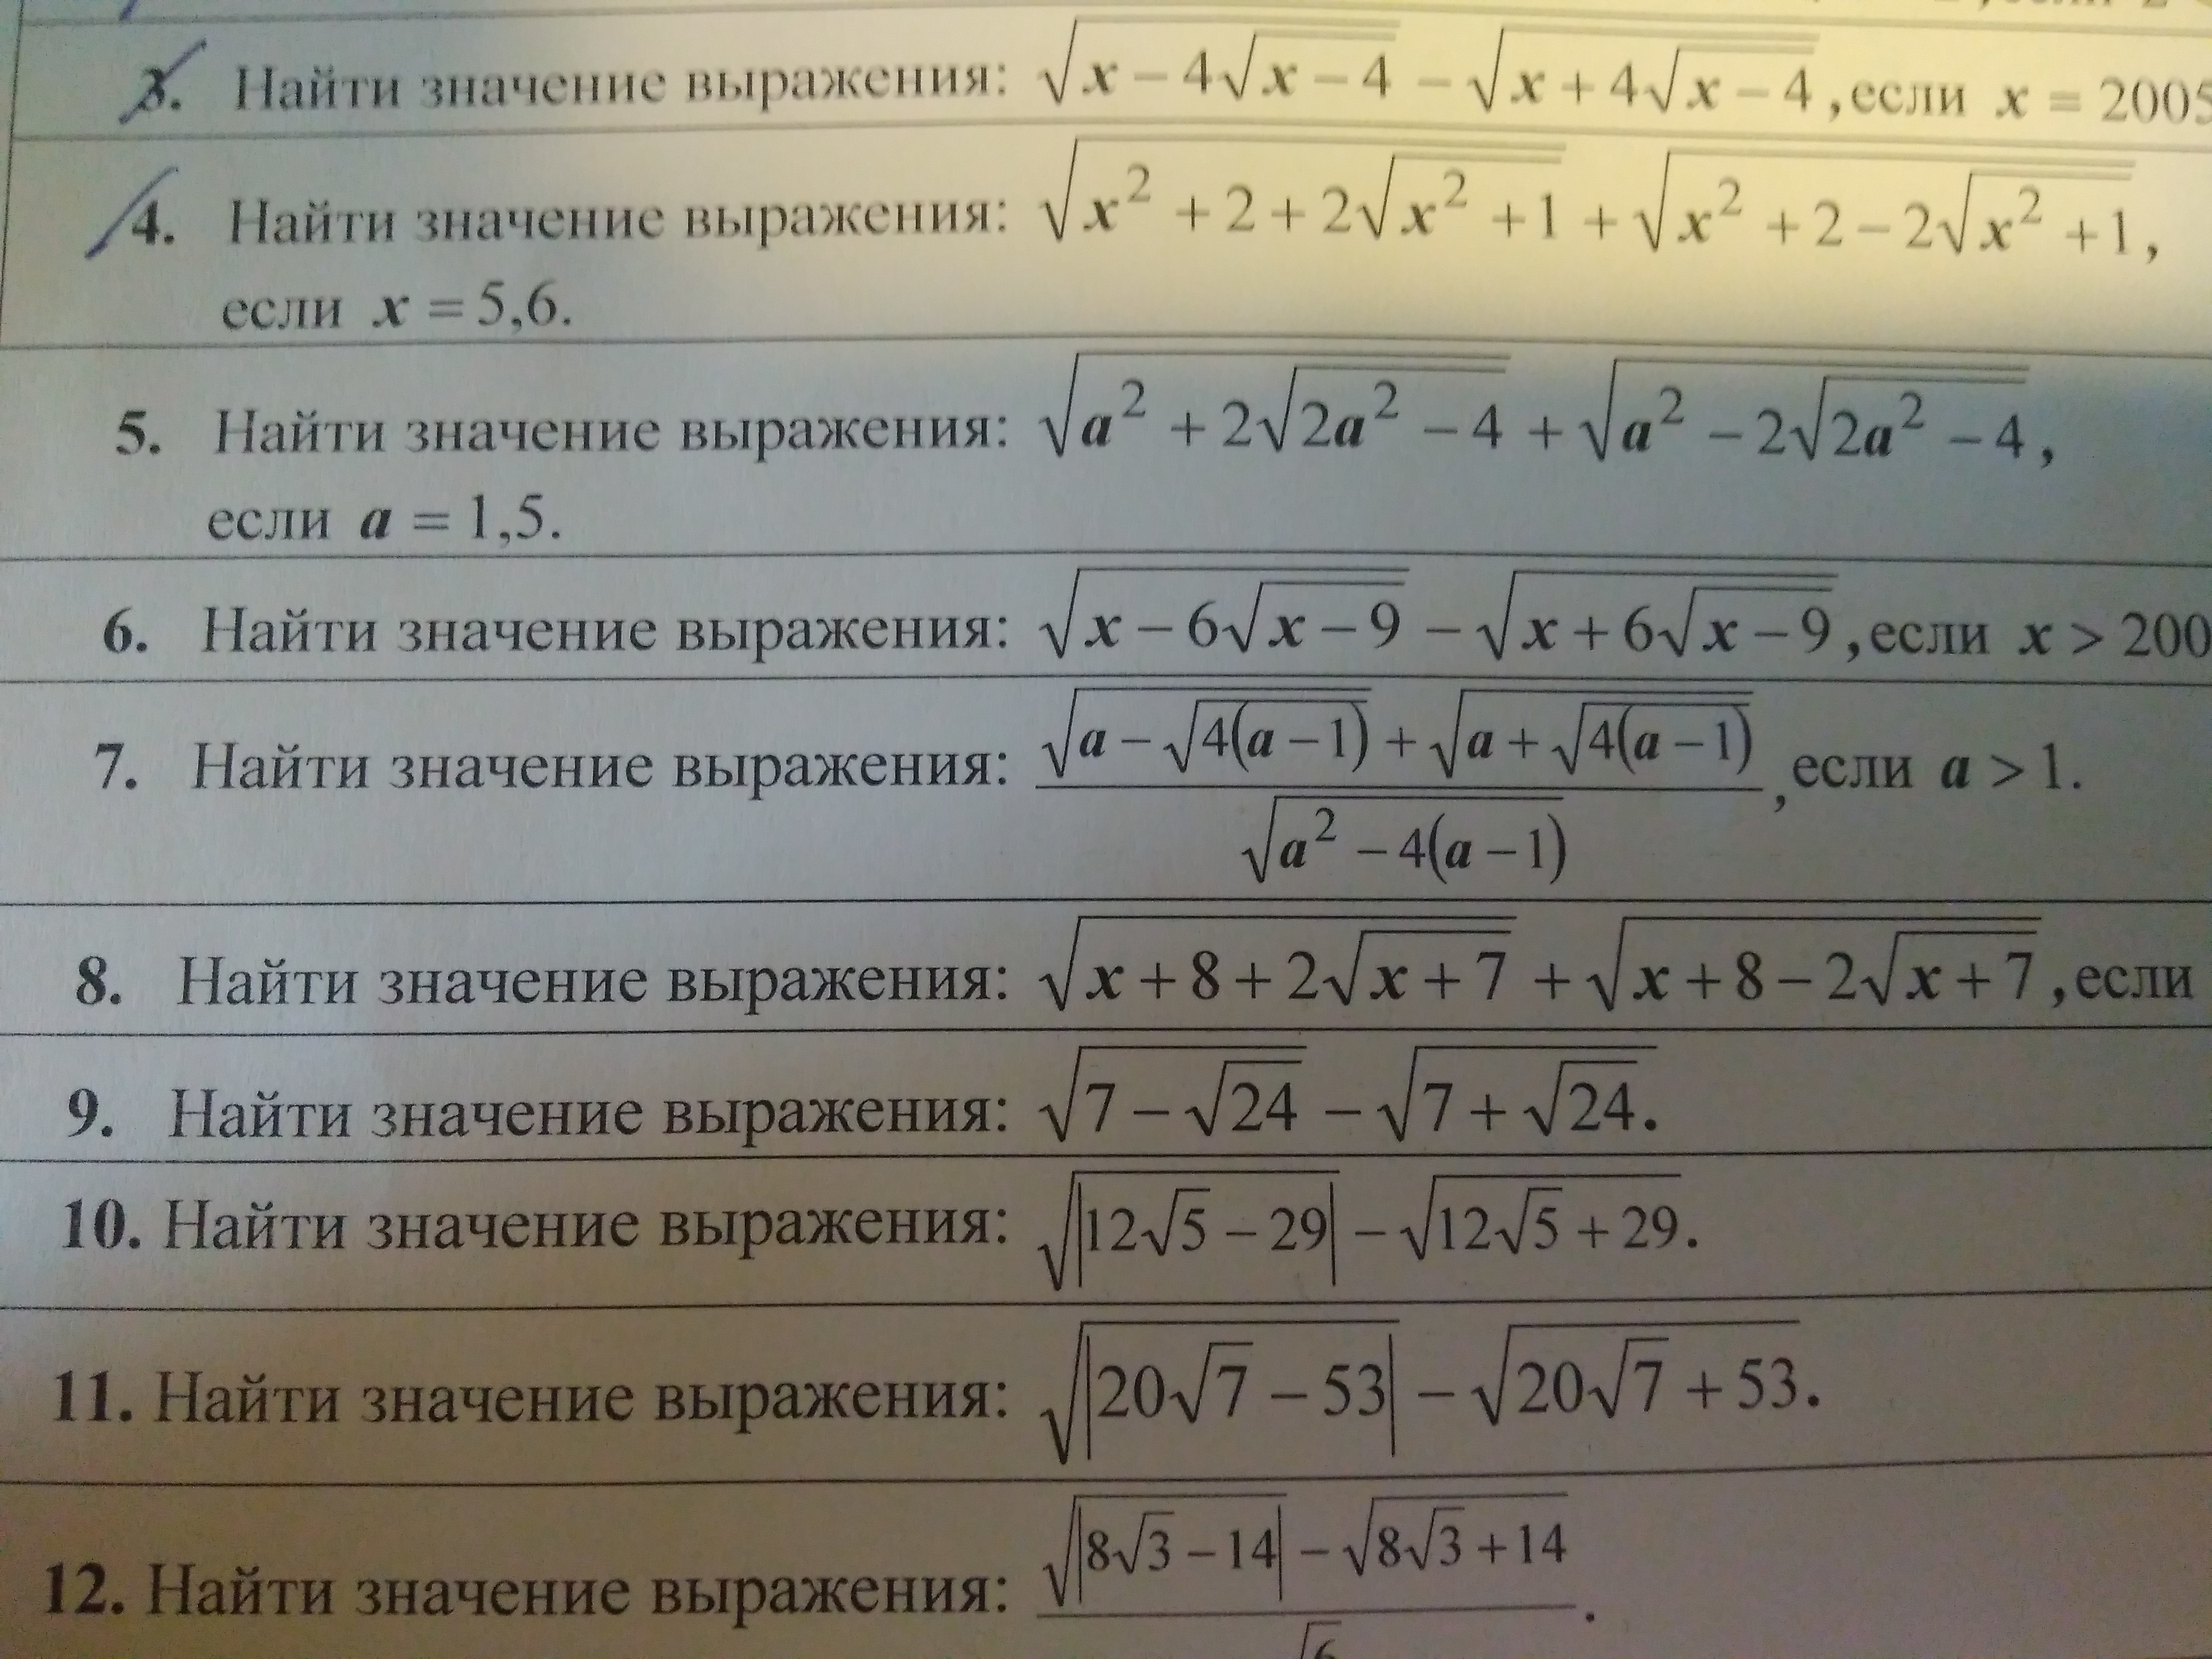 3. Найти значение выражения: √(x − 4√(x − 4)) − √(x + 4√(x − 4)), если x = 2005
4. Найти значение выражения: √(x² + 2 + 2√(x² + 1)) + √(x² + 2 − 2√(x² + 1)),
если x = 5,6.
5. Найти значение выражения: √(a² + 2√(2a² − 4)) + √(a² − 2√(2a² − 4)),
если a = 1,5.
6. Найти значение выражения: √(x − 6√(x − 9)) − √(x + 6√(x − 9)), если x > 200
7. Найти значение выражения: (√(a − √(4(a − 1))) + √(a + √(4(a − 1)))) / √(a² − 4(a − 1)), если a > 1.
8. Найти значение выражения: √(x + 8 + 2√(x + 7)) + √(x + 8 − 2√(x + 7)), если
9. Найти значение выражения: √(7 − √24) − √(7 + √24).
10. Найти значение выражения: √|12√5 − 29| − √(12√5 + 29).
11. Найти значение выражения: √|20√7 − 53| − √(20√7 + 53).
12. Найти значение выражения: (√|8√3 − 14| − √(8√3 + 14)) / √6.